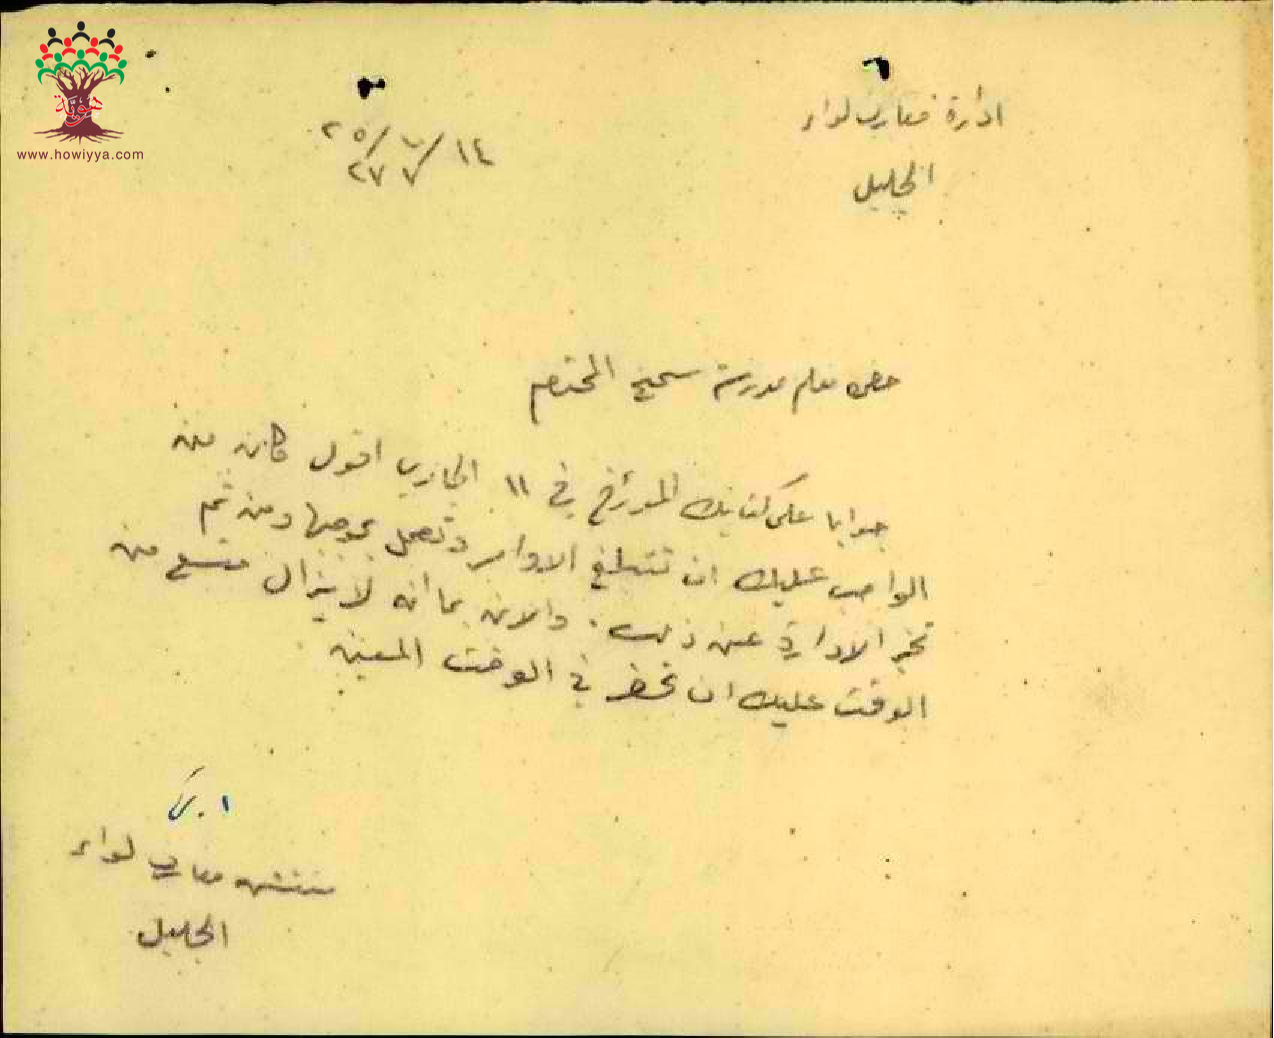 هوية
www.howiyya.com
ادارة معارف لواء
الجليل
١٤/٧/٢٥
٢٧
حضرة معلم مدرسة سحمخ المحترم
جوابا على كتابك المؤرخ في ١١ الجاري اقول كان من
الواجب عليك ان تتبلغ الاوامر وتعمل بموجبها ومن ثم
تخبر الادارة عن ذلك . والان بما انه لا يزال متسع من
الوقت عليك ان تحضر في الوقت المعين
مفتش معارف لواء
الجليل